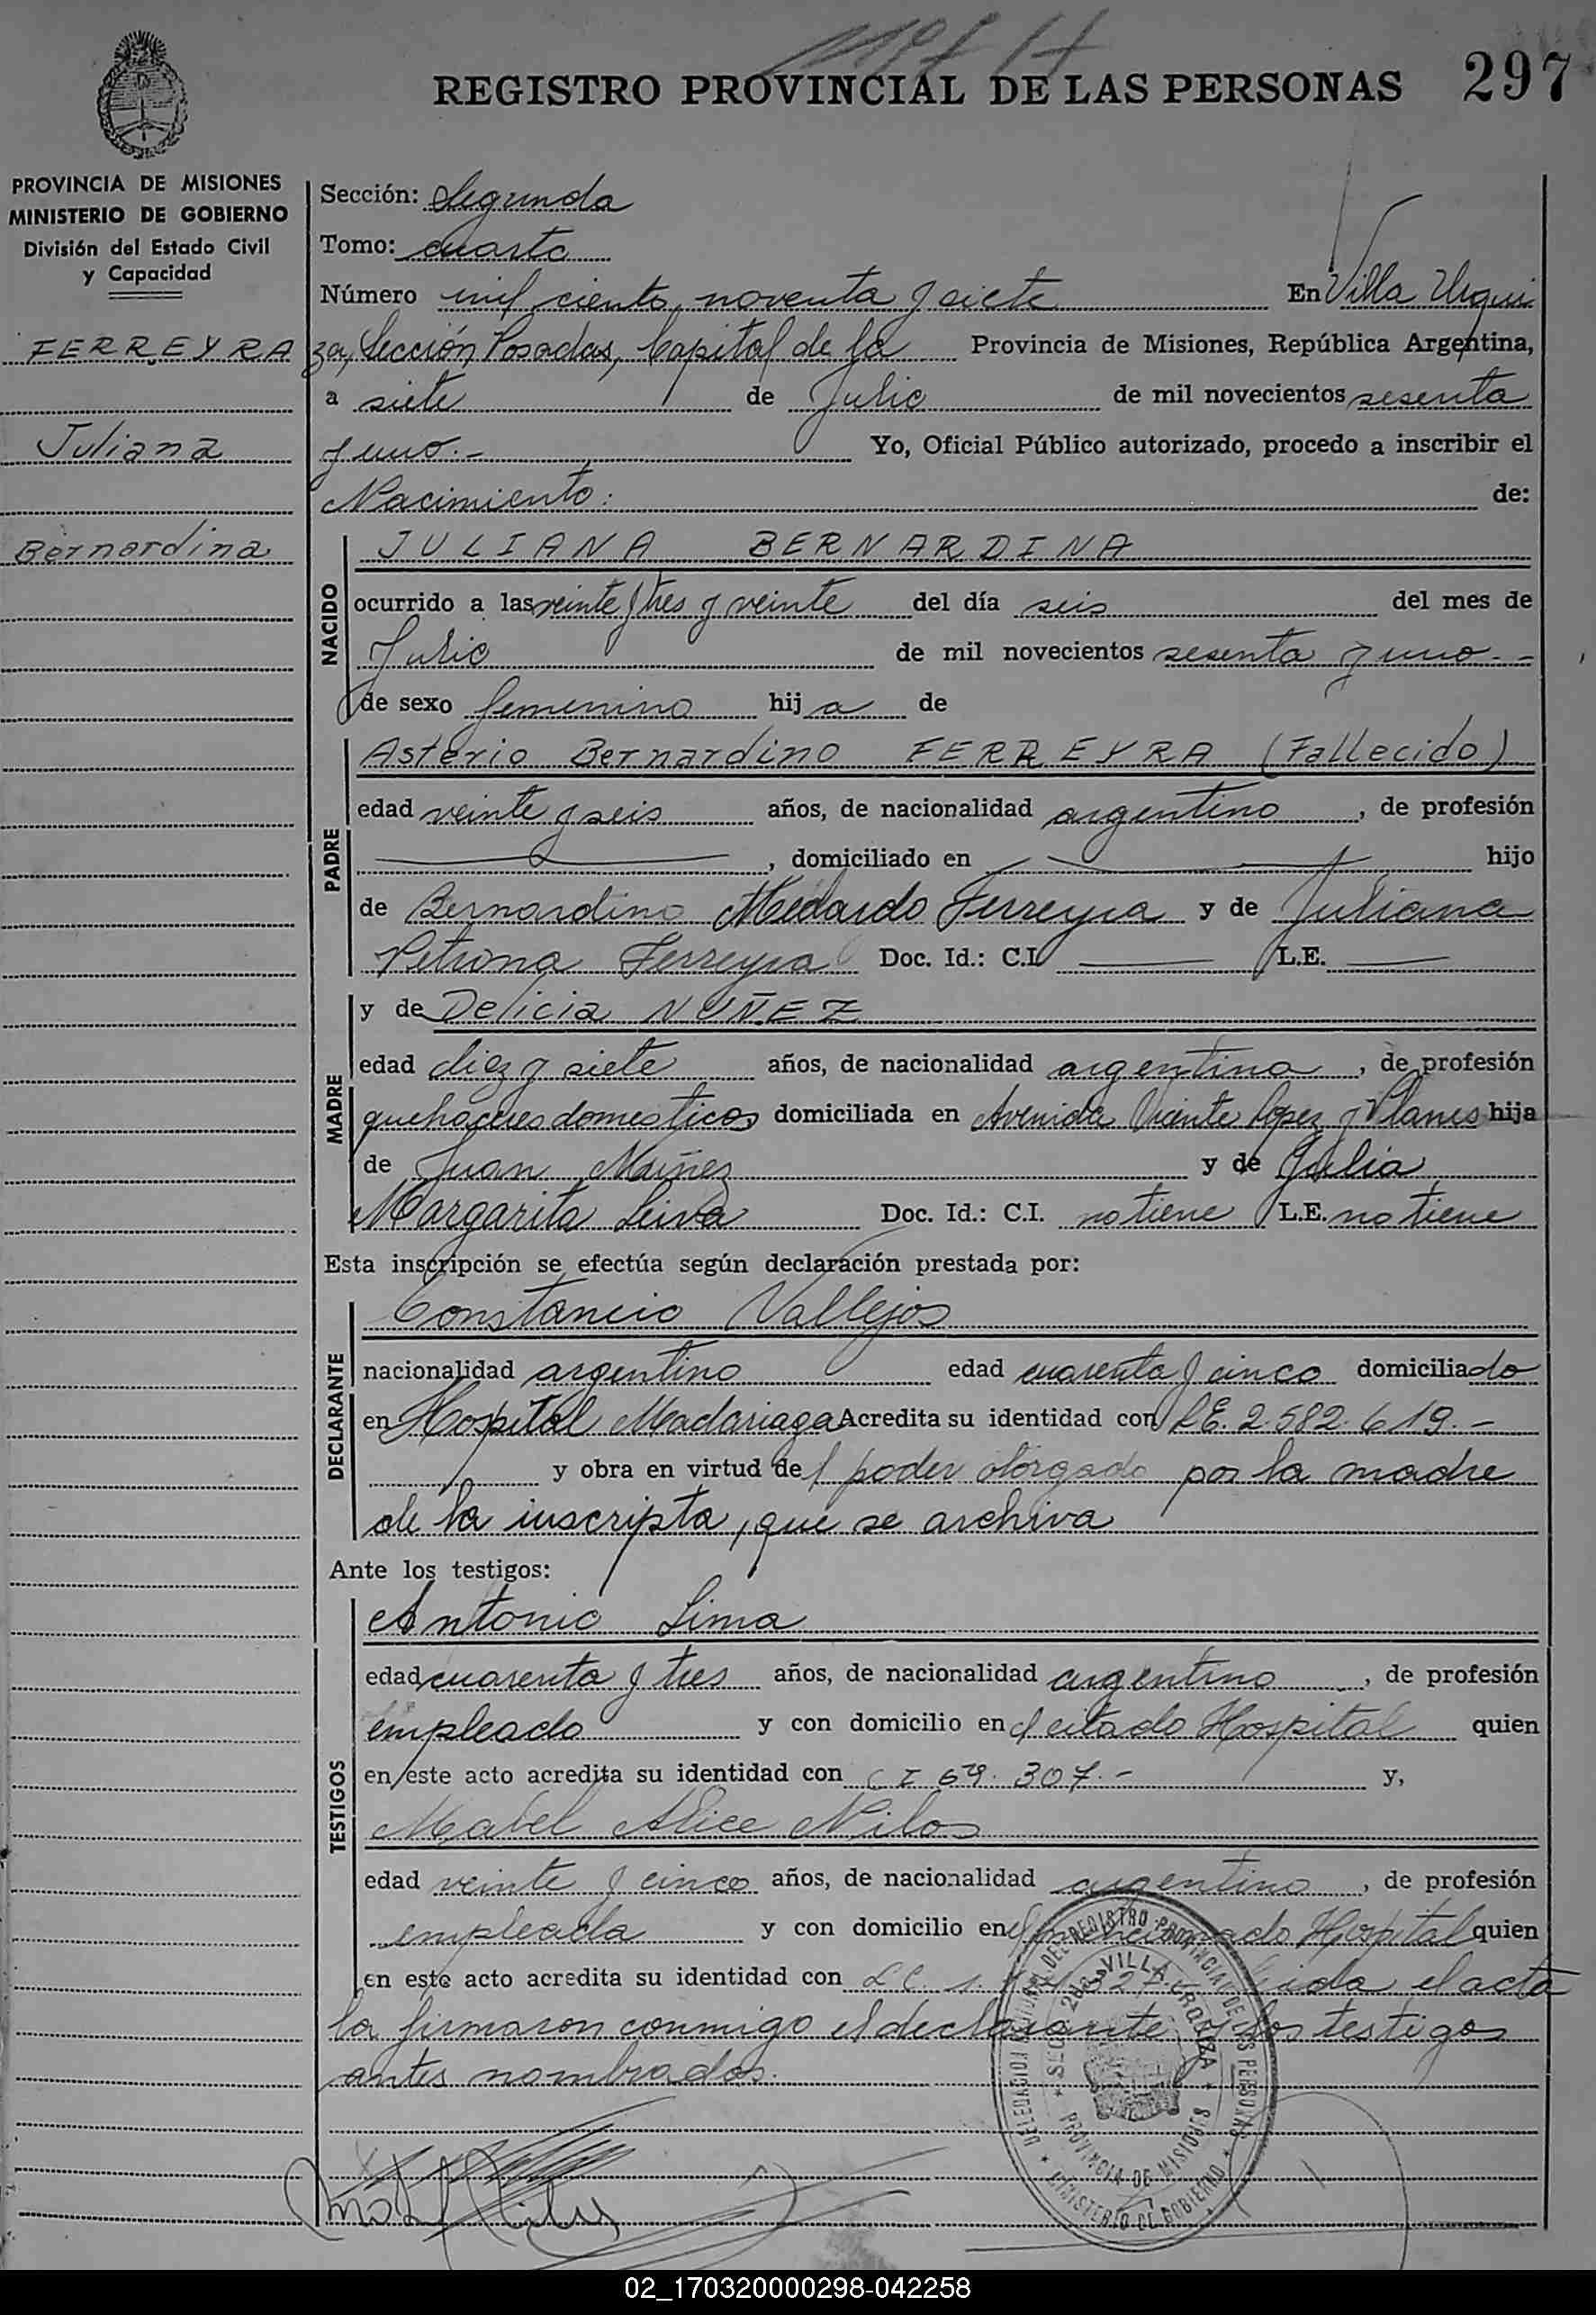 1197 H
REGISTRO PROVINCIAL DE LAS PERSONAS 297
PROVINCIA DE MISIONES
MINISTERIO DE GOBIERNO
División del Estado Civil
y Capacidad
FERREYRA
Juliana
Bernardina
Sección: Segunda
Tomo: cuarto
Número mil ciento noventa y siete En Villa Urqui
za, Sección Posadas, Capital de la Provincia de Misiones, República Argentina,
a siete de Julio de mil novecientos sesenta
y uno.- Yo, Oficial Público autorizado, procedo a inscribir el
Nacimiento: de:
NACIDO
JULIANA BERNARDINA
ocurrido a las veinte y tres y veinte del día seis del mes de
Julio de mil novecientos sesenta y uno--
de sexo femenino hija de
PADRE
Asterio Bernardino FERREYRA (Fallecido)
edad veinte y seis años, de nacionalidad argentino, de profesión
, domiciliado en hijo
de Bernardino Medardo Ferreyra y de Juliana
Petrona Ferreyra Doc. Id.: C.I. L.E.
MADRE
y de Delicia NUÑEZ
edad diez y siete años, de nacionalidad argentina, de profesión
quehaceres domesticos domiciliada en Avenida Vicente Lopez y Planes hija
de Juan Nuñez y de Julia
Margarita Leiva Doc. Id.: C.I. no tiene L.E. no tiene
Esta inscripción se efectúa según declaración prestada por:
DECLARANTE
Constancio Vallejos
nacionalidad argentino edad cuarenta y cinco domiciliado
en Hospital Madariaga Acredita su identidad con L.E. 2.582.619.-
y obra en virtud del poder otorgado por la madre
de la inscripta, que se archiva
Ante los testigos:
TESTIGOS
Antonio Lima
edad cuarenta y tres años, de nacionalidad argentino, de profesión
empleado y con domicilio en el citado Hospital quien
en este acto acredita su identidad con C I 69.307.- y,
Mabel Alice Nilos
edad veinte y cinco años, de nacionalidad argentino, de profesión
empleada y con domicilio en el mencionado Hospital quien
en este acto acredita su identidad con L.C. Leida el acta
la firmaron conmigo el declarante y los testigos
antes nombrados.
DELEGACION DEL REGISTRO PROVINCIAL DE LAS PERSONAS
MINISTERIO DE GOBIERNO
SECC. 2da. VILLA URQUIZA
PROVINCIA DE MISIONES
02_170320000298-042258